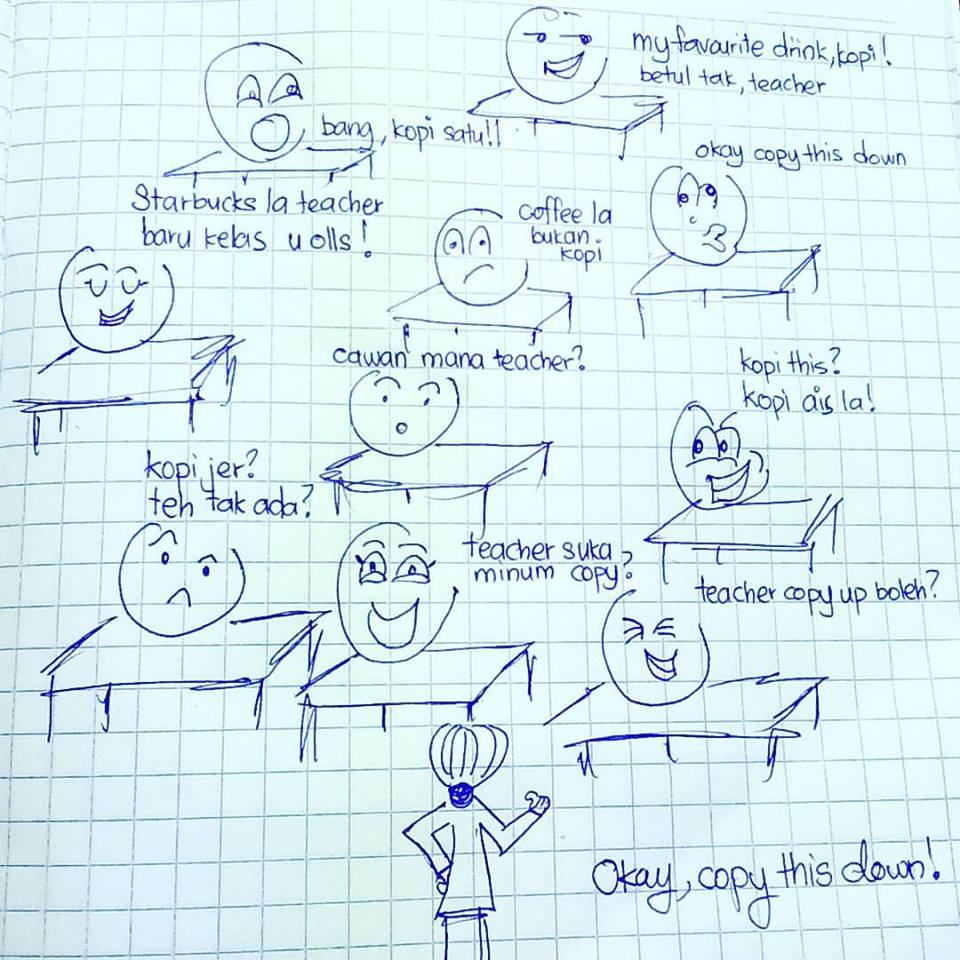 my favourite drink, kopi!
betul tak, teacher
bang, kopi satu!!
okay copy this down
Starbucks la teacher
baru kelas u olls!
coffee la
bukan
kopi
cawan mana teacher?
kopi this?
kopi ais la!
kopi jer?
teh tak ada?
teacher suka
minum copy?
teacher copy up boleh?
Okay, copy this down!